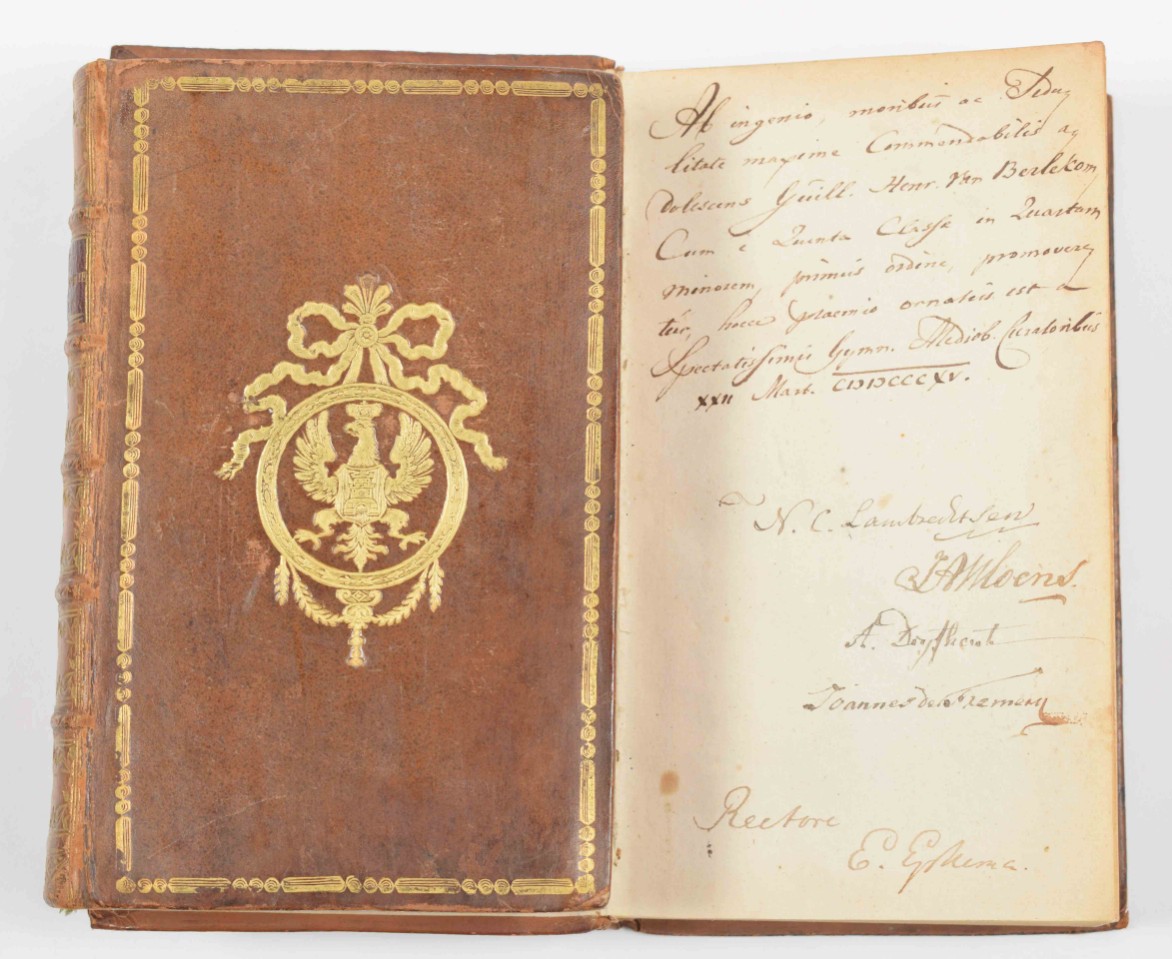 Ab ingenio, moribus ac Sedu-
litate maxime Commendabilis a-
dolescens Guill. Henr. Van Berlekom,
Cum e Quinta Classe in Quartam
minorem, primus ordine, promovere-
tur, hocce praemio ornatus est a
Spectatissimis Gymn. Mediob. Curatoribus
XXII Mart. CIƆIƆCCCXV.
N. C. Lambrechtsen
A. Dryfhout
Joannes de Fremery
Rectore
E.